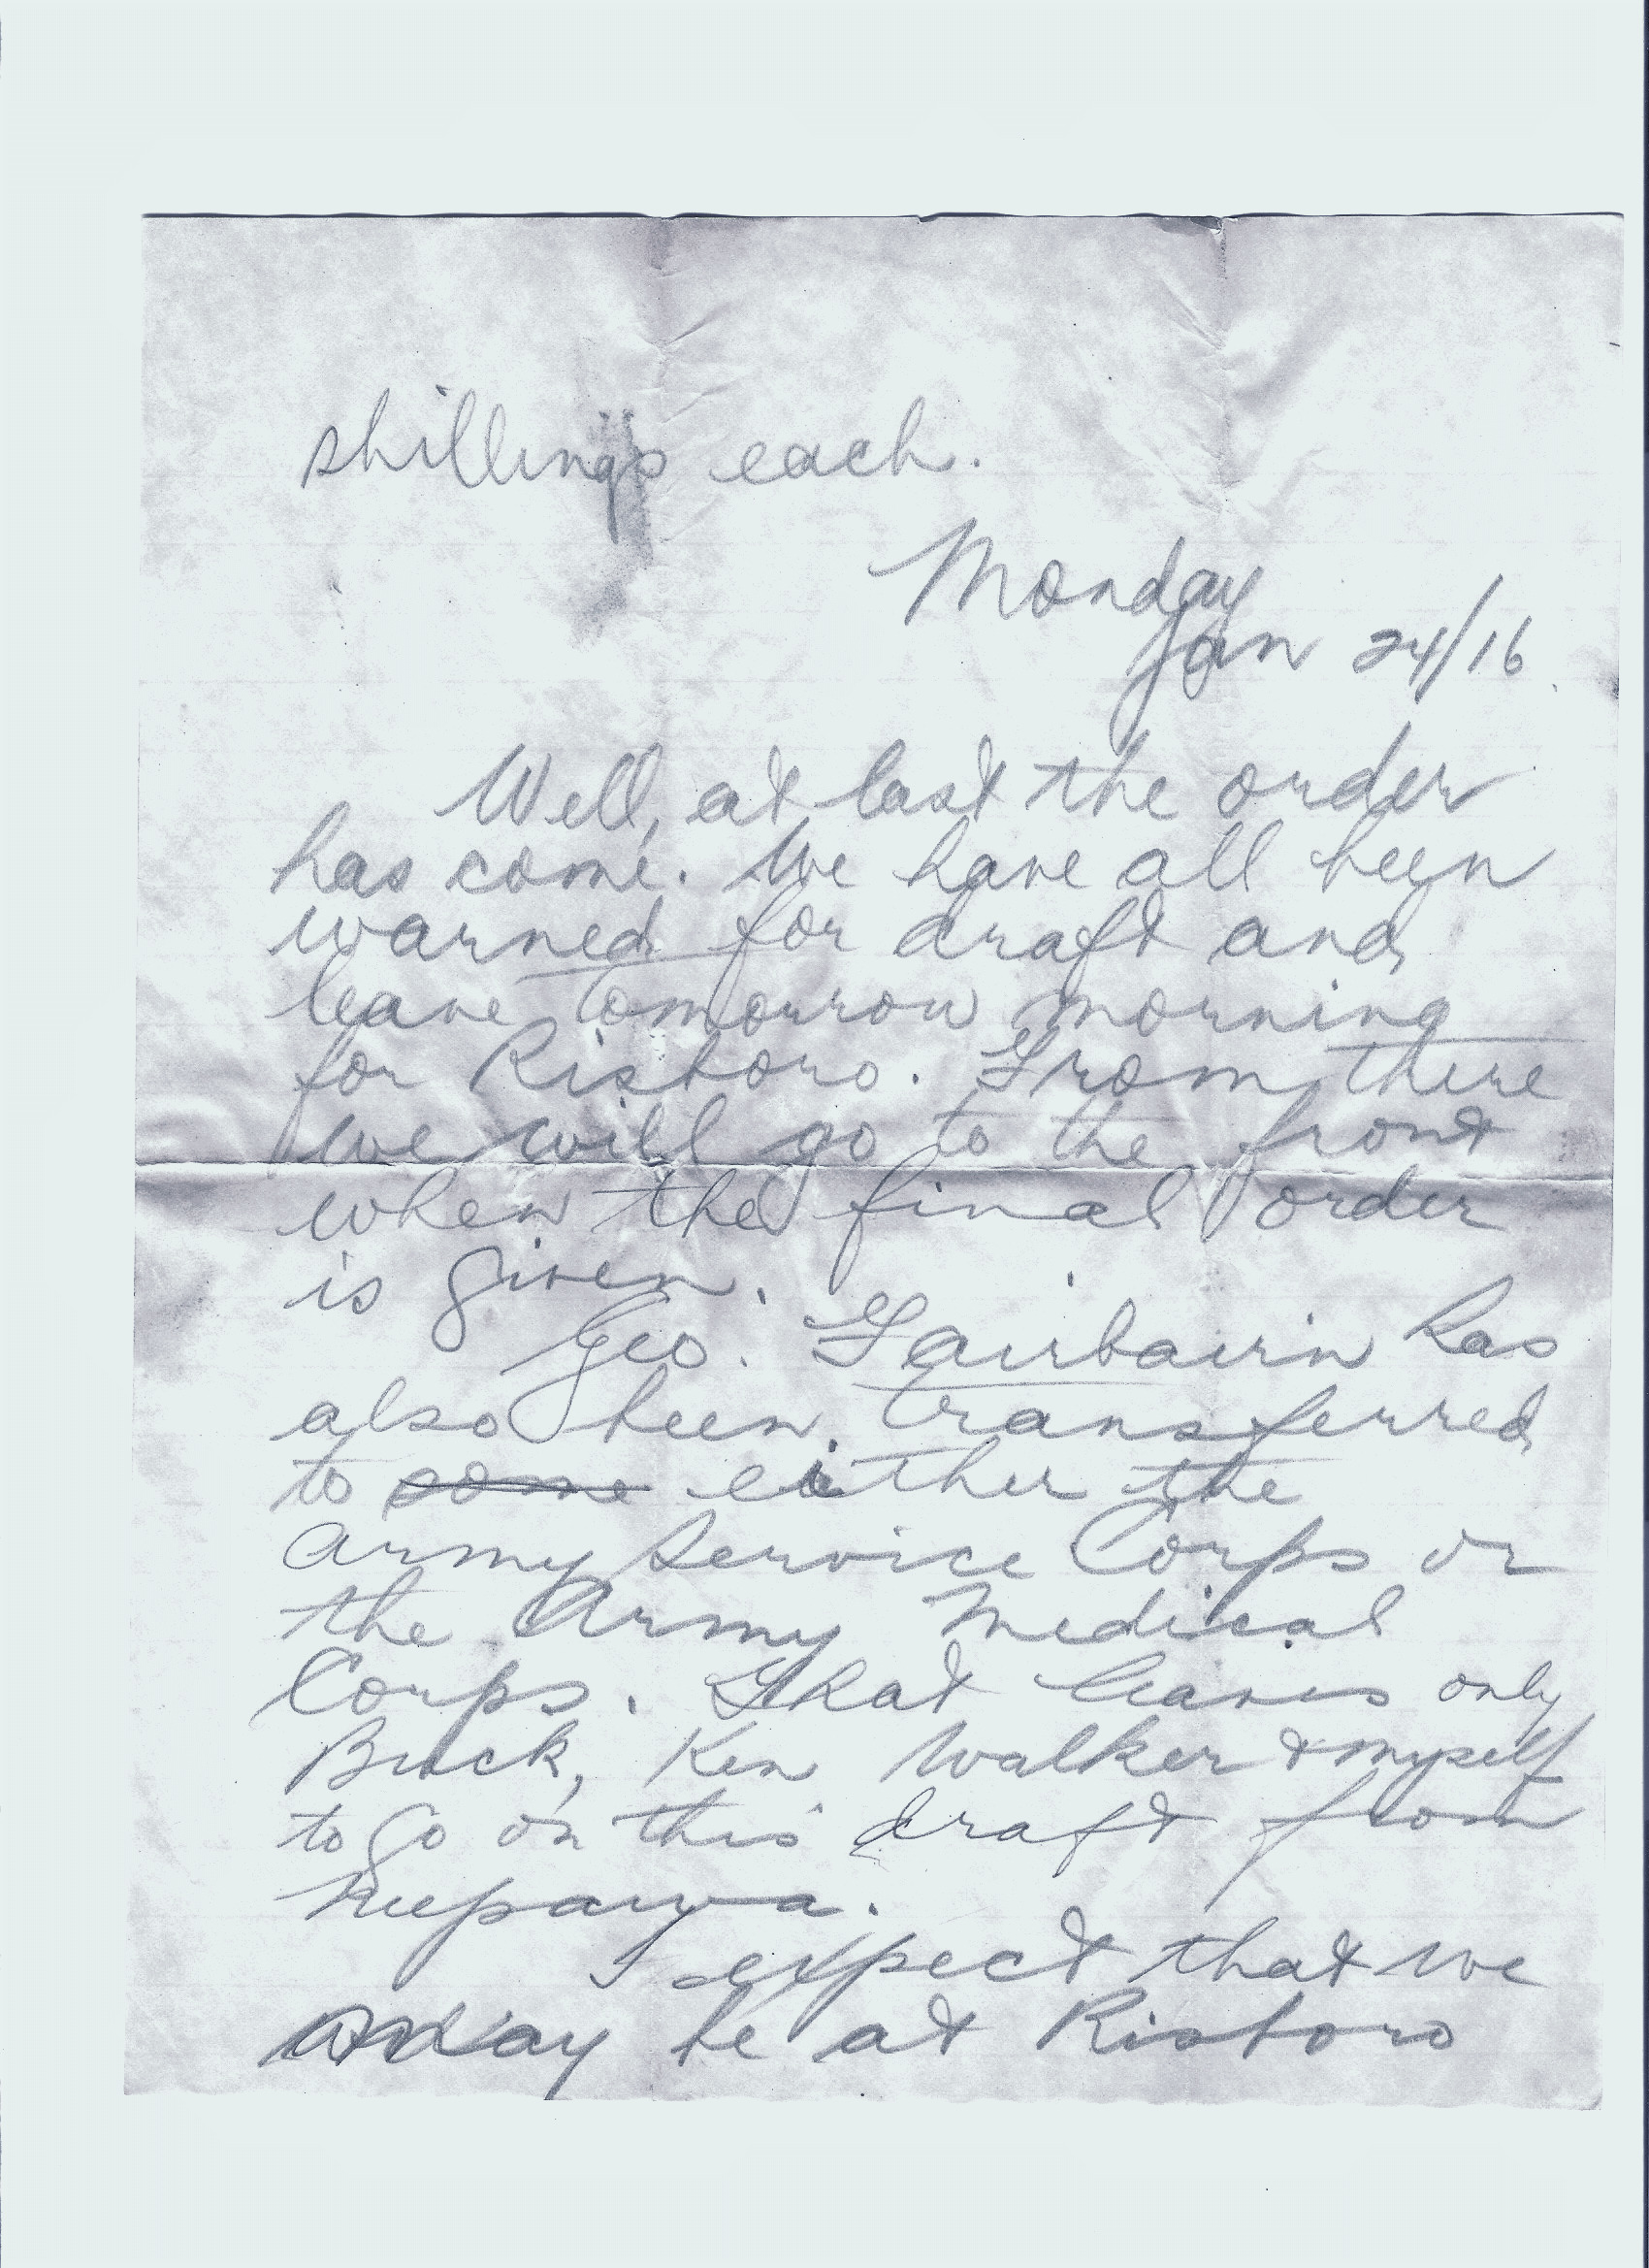 shillings each.
Monday
Jan 24/16
Well, at last the order
has come. We have all been
warned for draft and
leave tomorrow morning
for Risboro. From there
we will go to the front
when the final order
is given.
Geo. Fairbairn has
also been transferred
to some either the
Army Service Corps or
the Army Medical
Corps. That leaves only
Buck, Ken Walker & myself
to go on this draft from
Neepawa.
I expect that we
may be at Risboro